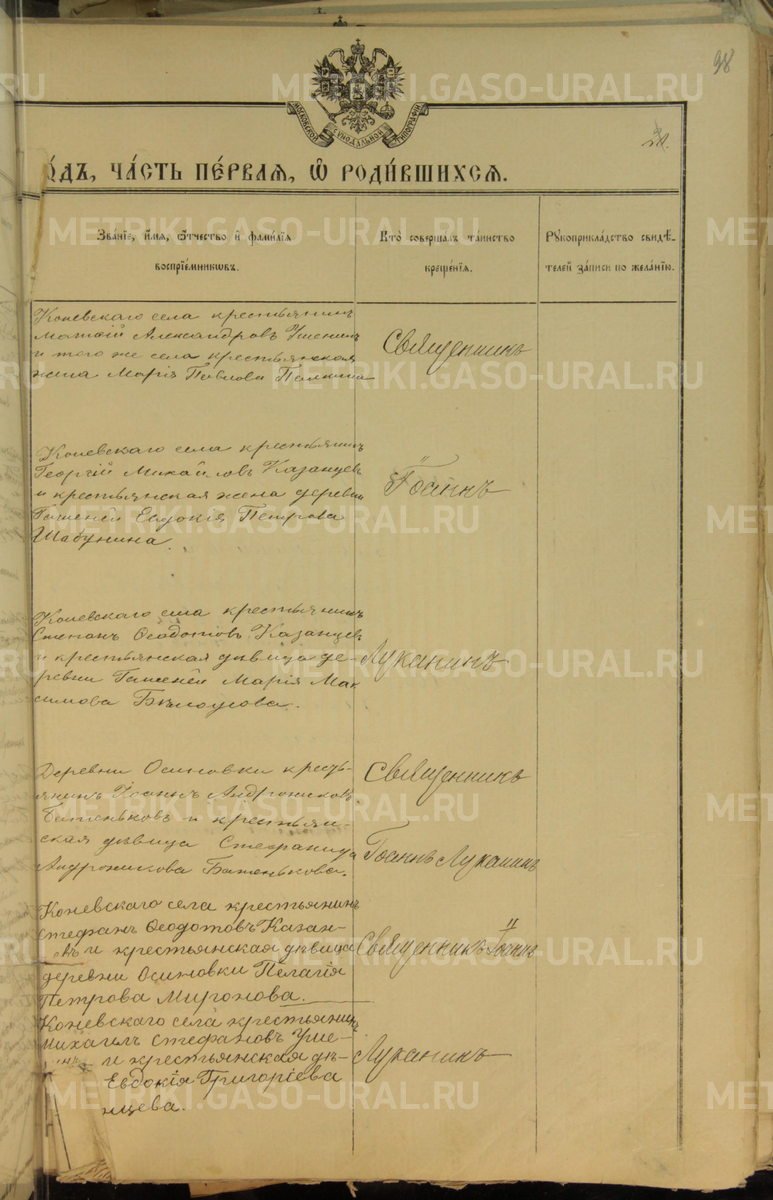 98
МОСКОВСКОЙ СѴНОДАЛЬНОЙ ТИПОГРАФІИ
О́ДЪ, ЧА́СТЬ ПЕ́РВАЯ, Ѡ҆ РОДИ́ВШИХСЯ.
Зва́ніе, и҆́мя, ѻ҆́тчество и҆ фами́лія
воспріе́мникѡвъ.
Кто̀ соверша́лъ та́инство
креще́нія.
Рꙋкоприкла́дство свидѣ́-
телей за́писи по жела́нію.
Коневскаго села крестьянинъ
Матѳій Александровъ
и того же села крестьянская
жена Марія Павлова
Священникъ
Коневскаго села крестьянинъ
Георгій Михайловъ Казанцевъ
и крестьянская жена деревни
Гашеней Евдокія Петрова
Шабунина.
Іоаннъ
Коневскаго села крестьянинъ
Степанъ Ѳеодотовъ Казанцевъ
и крестьянская дѣвица де-
ревни Гашеней Марія Мак
симова Бѣлоусова.
Луканинъ
Деревни Осиновки кресть-
янинъ Іоаннъ Андрониковъ
Батеньковъ и крестьян-
ская дѣвица Стефанида
Андроникова Батенькова.
Священникъ
Іоаннъ Луканинъ
Коневскаго села крестьянинъ
Стефанъ Ѳеодотовъ Казан-
въ и крестьянская дѣвица
деревни Осиновки Пелагія
Петрова Миронова.
Священникъ Іоаннъ
Коневскаго села крестьянинъ
Михаилъ Стефановъ Уше-
и крестьянская дѣ-
Евдокія Григоріева
нцева.
Луканинъ
METRIKI.GASO-URAL.RU